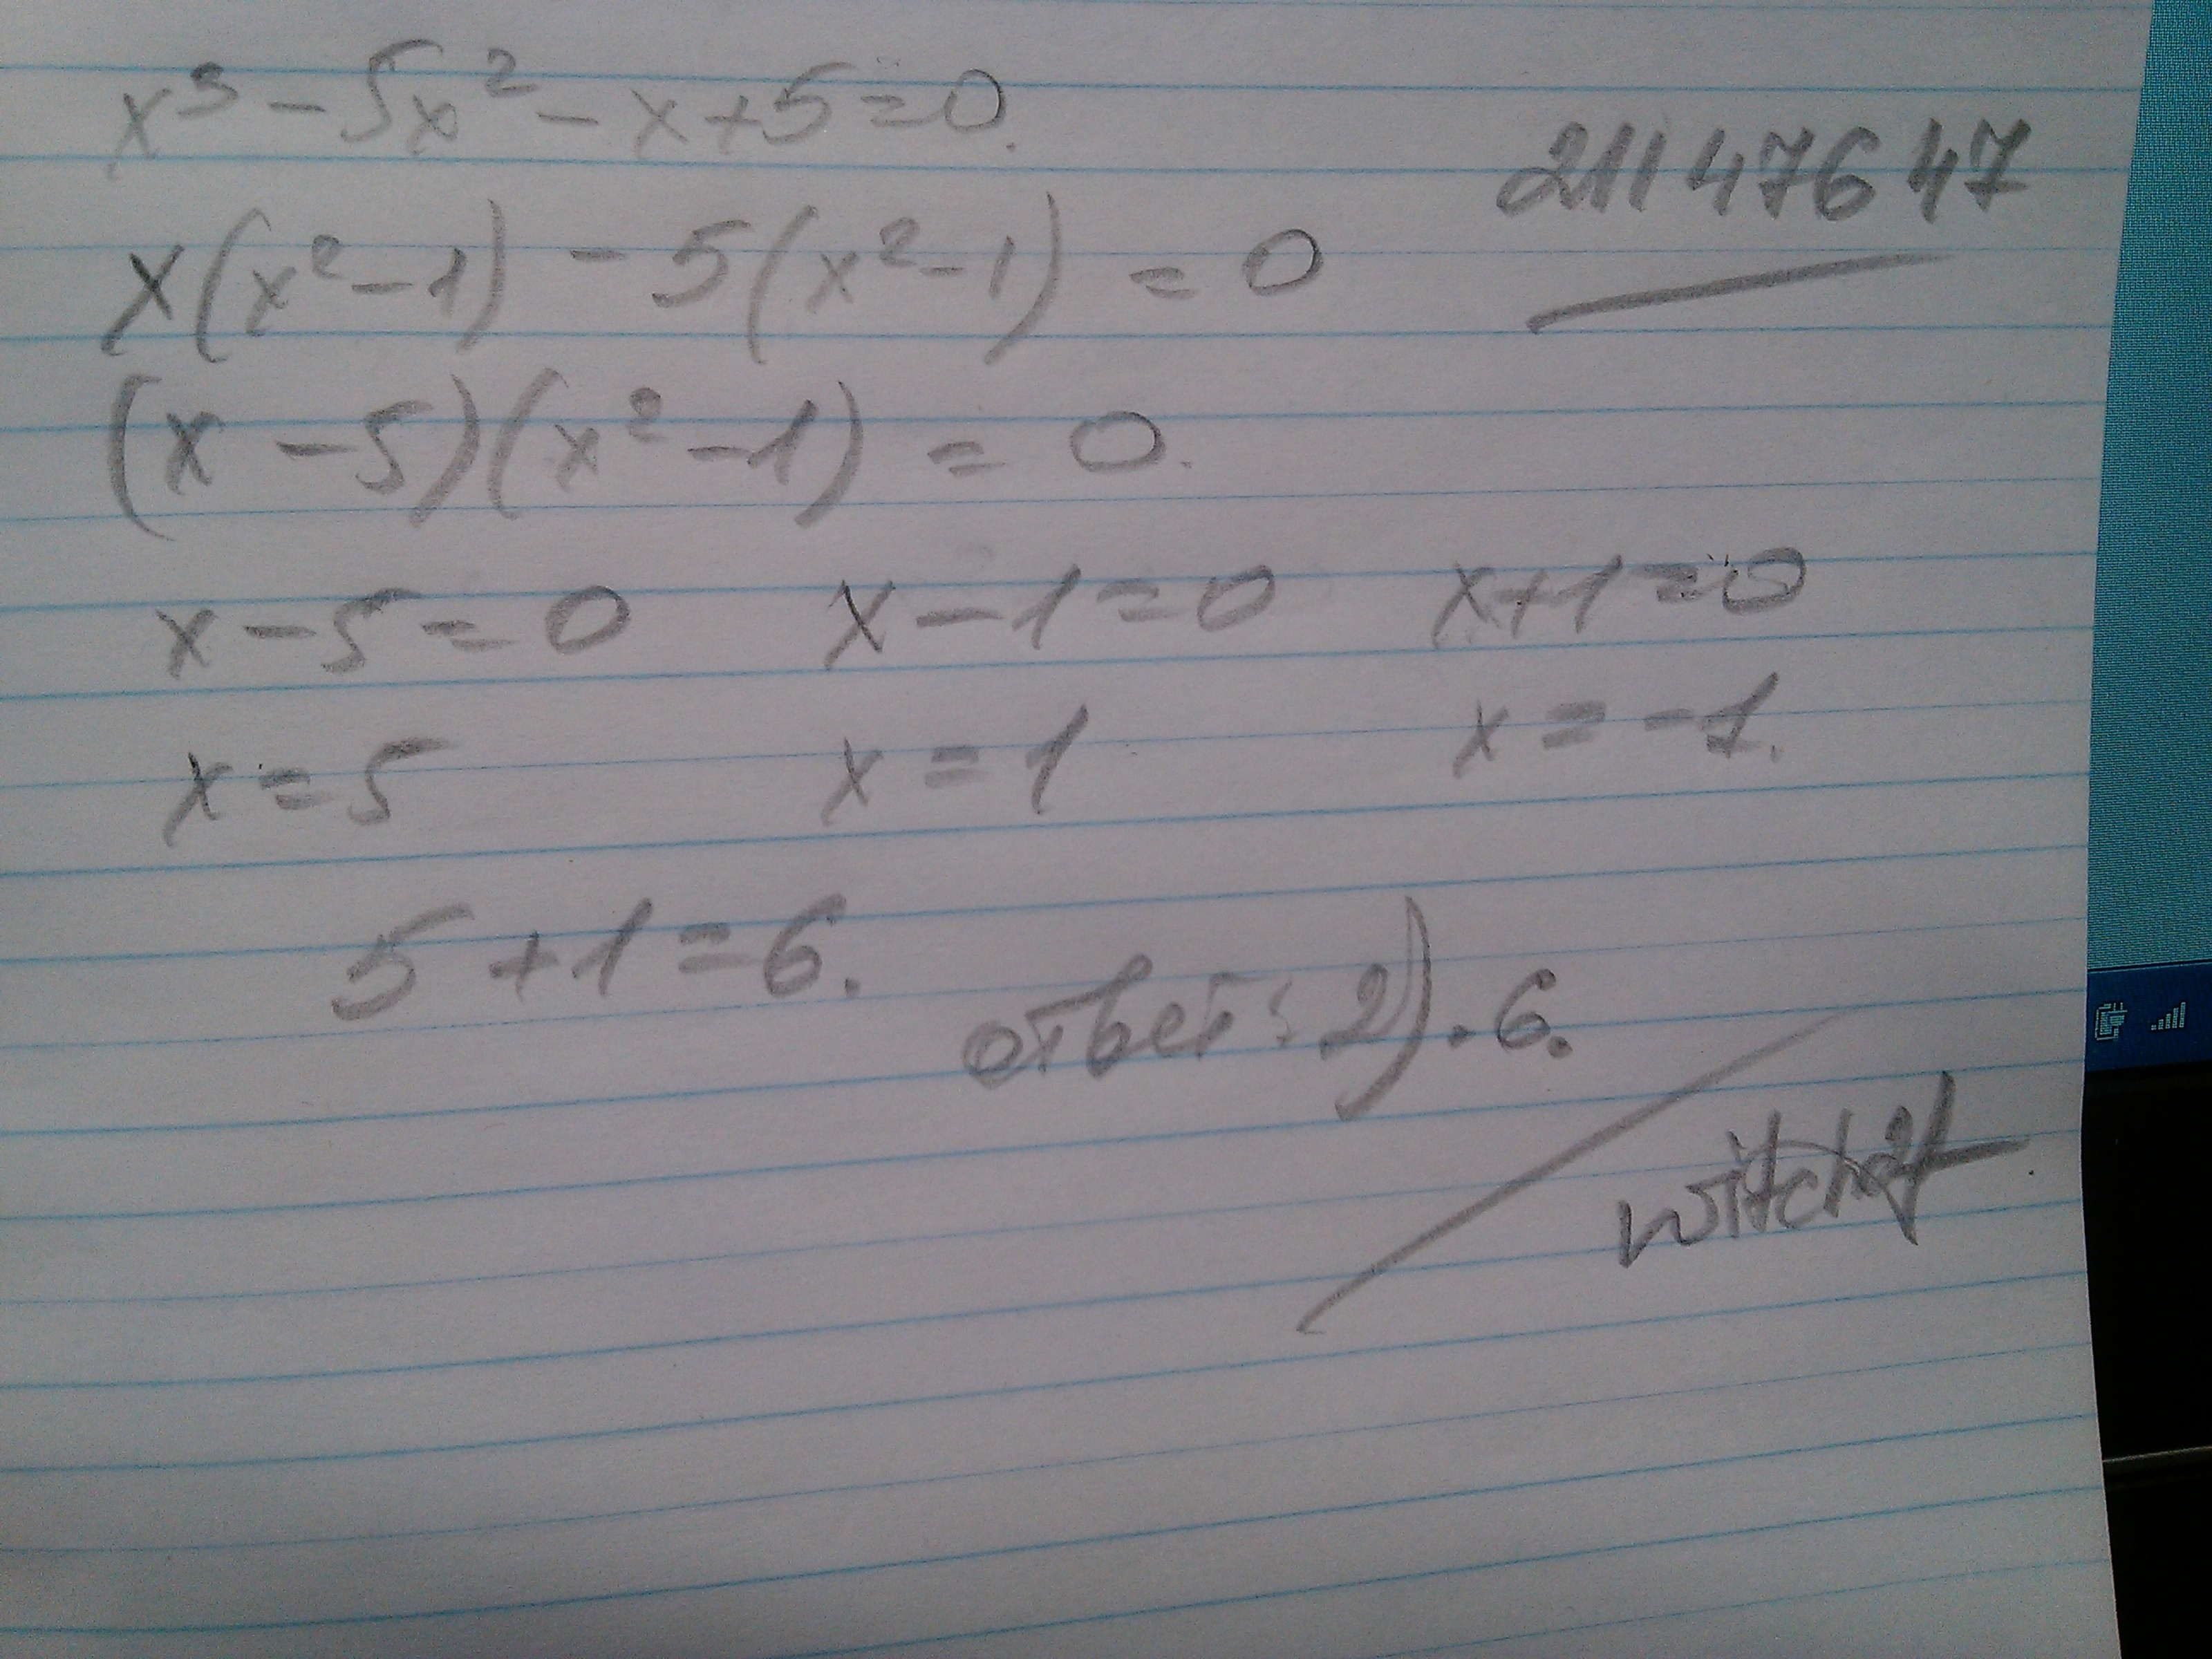 x³ - 5x² - x + 5 = 0.
21147647
x(x² - 1) - 5(x² - 1) = 0
(x - 5)(x² - 1) = 0.
x - 5 = 0 x - 1 = 0 x + 1 = 0
x = 5 x = 1 x = -1.
5 + 1 = 6.
ответ: 2). 6.